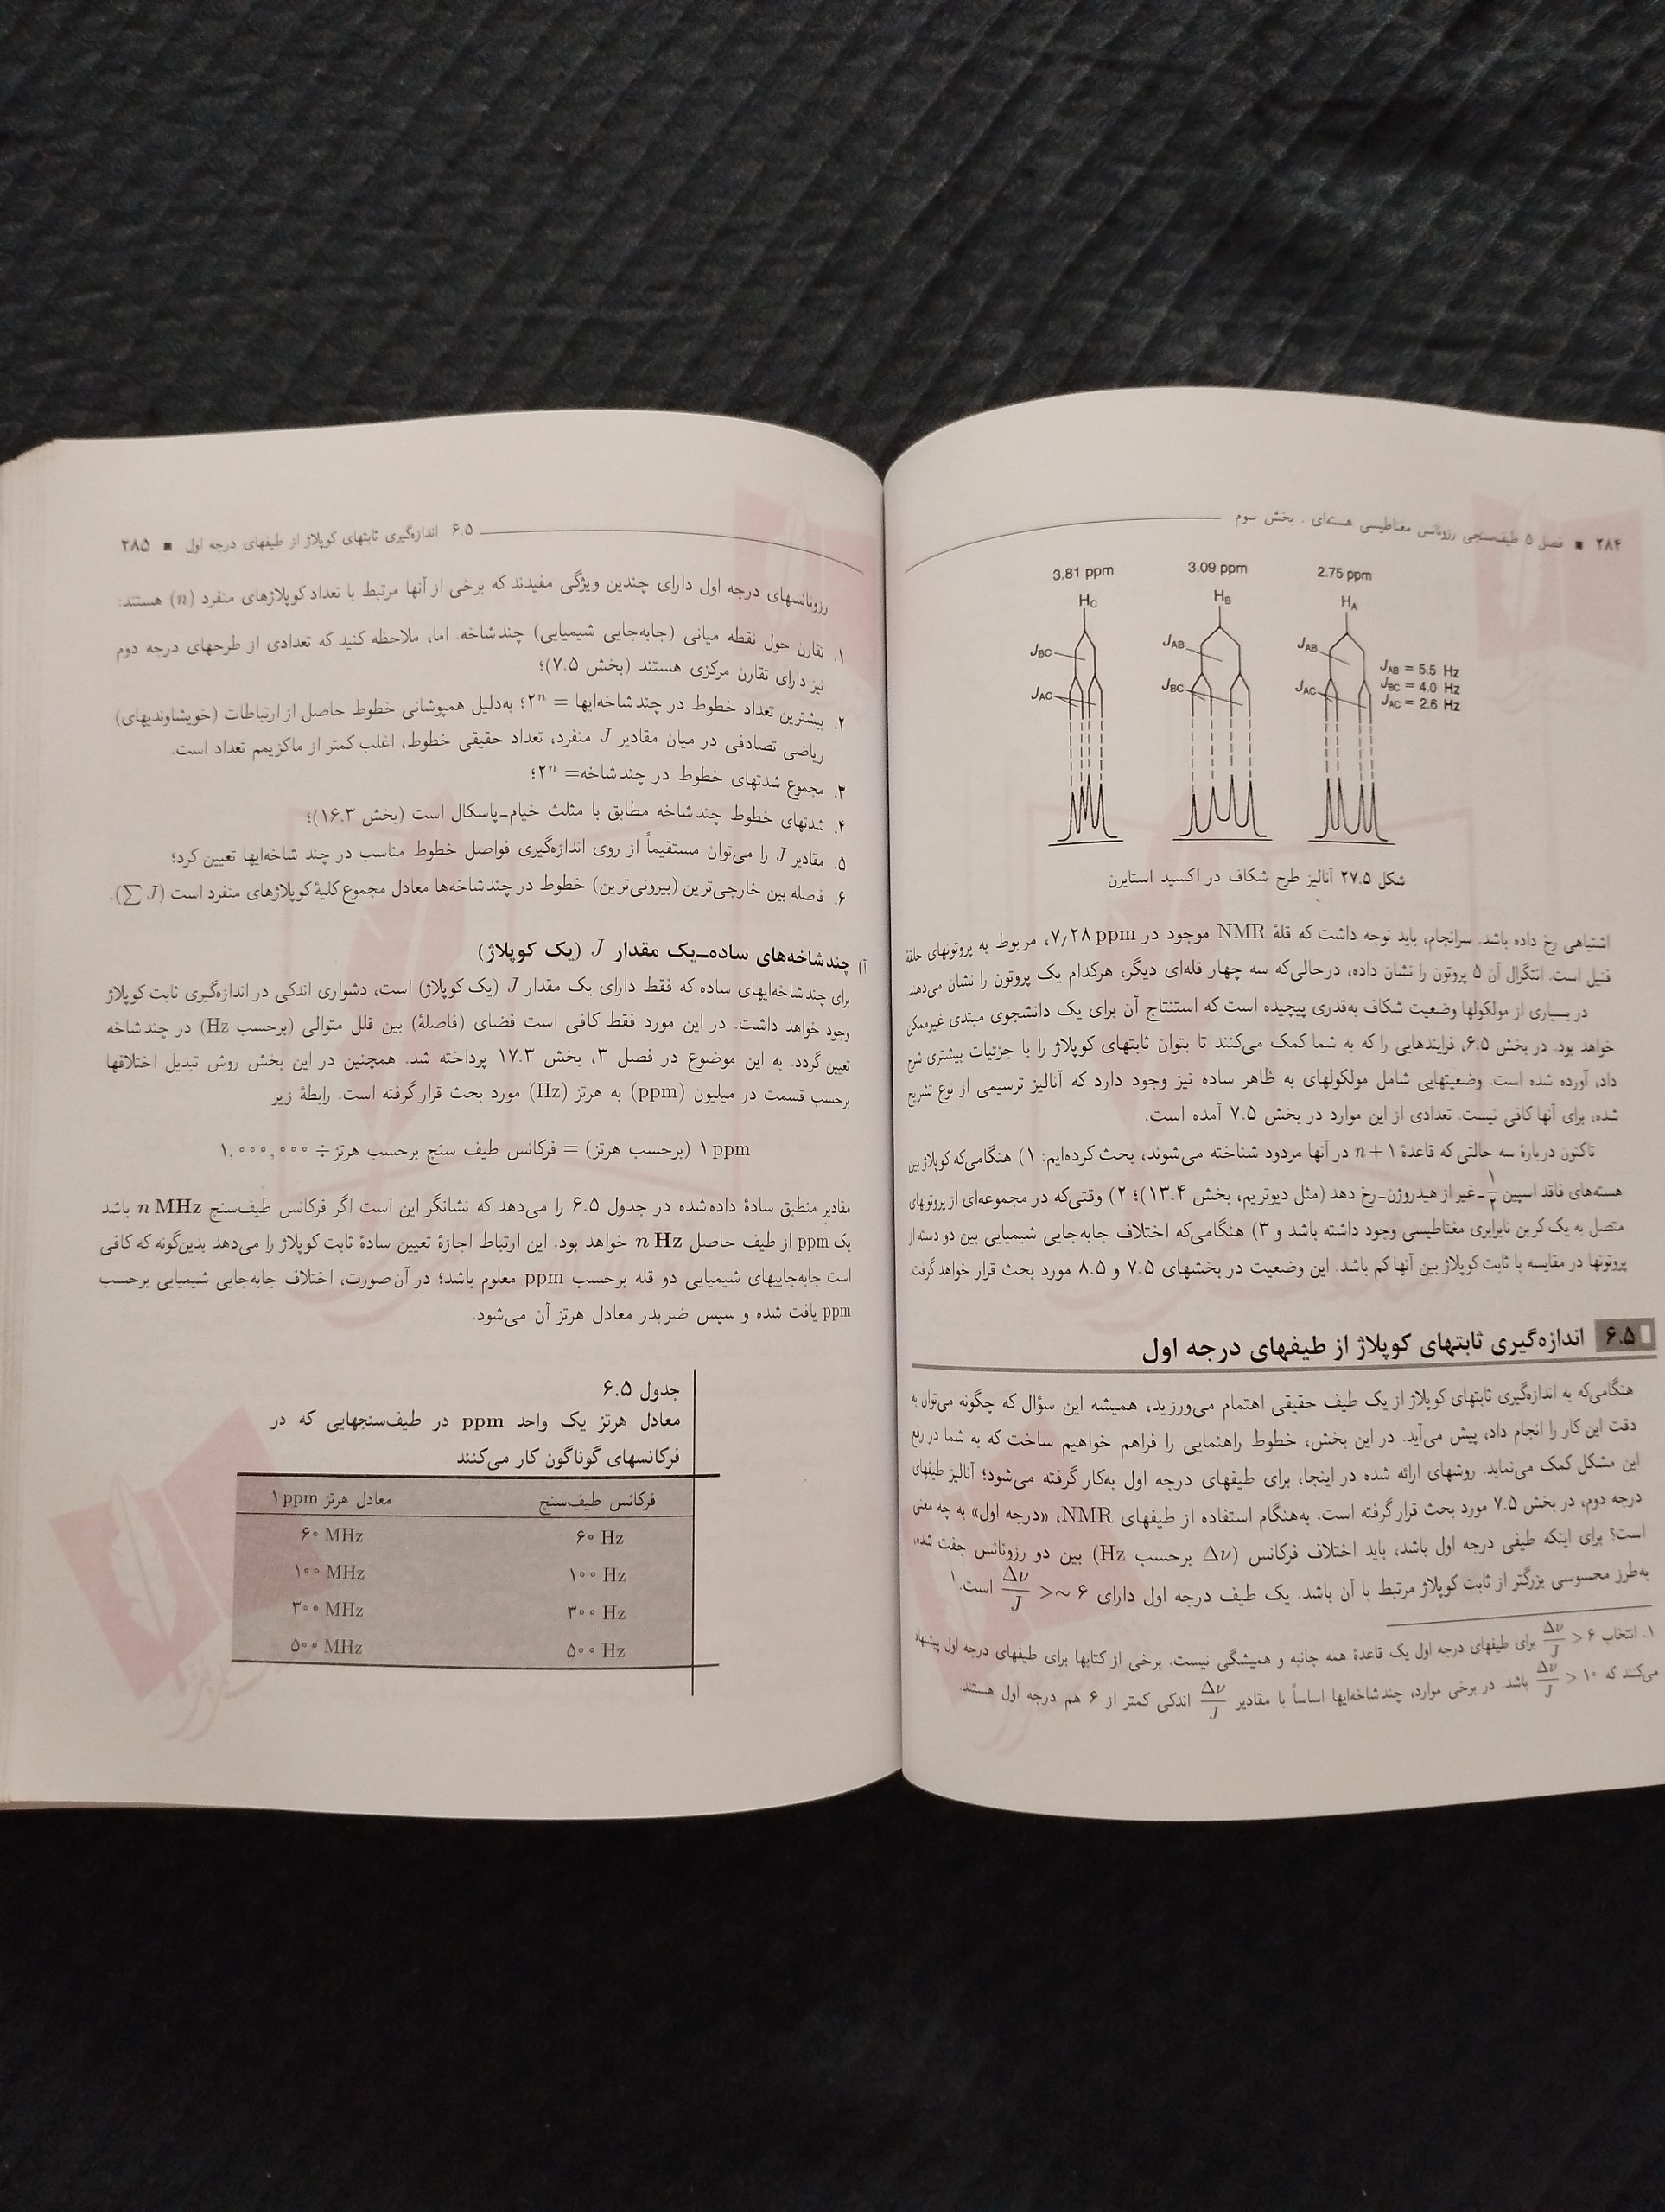 ۲۸۴ ■ فصل ۵ طیف‌سنجی رزونانس مغناطیسی هسته‌ای . بخش سوم
3.81 ppm 3.09 ppm 2.75 ppm
HC HB HA
JBC JAB JAB
JAC JBC JAC
JAB = 5.5 Hz
JBC = 4.0 Hz
JAC = 2.6 Hz
شکل ۲۷.۵ آنالیز طرح شکاف در اکسید استایرن
اشتباهی رخ داده باشد. سرانجام، باید توجه داشت که قلهٔ NMR موجود در ۷٫۲۸ ppm، مربوط به پروتونهای حلقهٔ
فنیل است. انتگرال آن ۵ پروتون را نشان داده، درحالی‌که سه چهار قله‌ای دیگر، هرکدام یک پروتون را نشان می‌دهند.
در بسیاری از مولکولها وضعیت شکاف به‌قدری پیچیده است که استنتاج آن برای یک دانشجوی مبتدی غیرممکن
خواهد بود. در بخش ۶.۵، فرایندهایی را که به شما کمک می‌کنند تا بتوان ثابتهای کوپلاژ را با جزئیات بیشتری شرح
داد، آورده شده است. وضعیتهایی شامل مولکولهای به ظاهر ساده نیز وجود دارد که آنالیز ترسیمی از نوع تشریح
شده، برای آنها کافی نیست. تعدادی از این موارد در بخش ۷.۵ آمده است.
تاکنون دربارهٔ سه حالتی که قاعدهٔ n + ۱ در آنها مردود شناخته می‌شوند، بحث کرده‌ایم: ۱) هنگامی‌که کوپلاژ بین
هسته‌های فاقد اسپین ۱/۲ــغیر از هیدروژن‌ــرخ دهد (مثل دیوتریم، بخش ۱۳.۴)؛ ۲) وقتی‌که در مجموعه‌ای از پروتونهای
متصل به یک کربن نابرابری مغناطیسی وجود داشته باشد و ۳) هنگامی‌که اختلاف جابه‌جایی شیمیایی بین دو دسته از
پروتونها در مقایسه با ثابت کوپلاژ بین آنها کم باشد. این وضعیت در بخشهای ۷.۵ و ۸.۵ مورد بحث قرار خواهد گرفت
۶.۵ اندازه‌گیری ثابتهای کوپلاژ از طیفهای درجه اول
هنگامی‌که به اندازه‌گیری ثابتهای کوپلاژ از یک طیف حقیقی اهتمام می‌ورزید، همیشه این سؤال که چگونه می‌توان به
دقت این کار را انجام داد، پیش می‌آید. در این بخش، خطوط راهنمایی را فراهم خواهیم ساخت که به شما در رفع
این مشکل کمک می‌نماید. روشهای ارائه شده در اینجا، برای طیفهای درجه اول به‌کار گرفته می‌شود؛ آنالیز طیفهای
درجه دوم، در بخش ۷.۵ مورد بحث قرار گرفته است. به‌هنگام استفاده از طیفهای NMR، «درجه اول» به چه معنی
است؟ برای اینکه طیفی درجه اول باشد، باید اختلاف فرکانس (Δν برحسب Hz) بین دو رزونانس جفت شده،
به‌طرز محسوسی بزرگتر از ثابت کوپلاژ مرتبط با آن باشد. یک طیف درجه اول دارای Δν/J >~ ۶ است.۱
۱. انتخاب Δν/J > ۶ برای طیفهای درجه اول یک قاعدهٔ همه جانبه و همیشگی نیست. برخی از کتابها برای طیفهای درجه اول پیشنهاد
می‌کنند که Δν/J > ۱۰ باشد. در برخی موارد، چندشاخه‌ایها اساساً با مقادیر Δν/J اندکی کمتر از ۶ هم درجه اول هستند.
۶.۵ اندازه‌گیری ثابتهای کوپلاژ از طیفهای درجه اول ■ ۲۸۵
رزونانسهای درجه اول دارای چندین ویژگی مفیدند که برخی از آنها مرتبط با تعداد کوپلاژهای منفرد (n) هستند:
۱. تقارن حول نقطه میانی (جابه‌جایی شیمیایی) چندشاخه. اما، ملاحظه کنید که تعدادی از طرحهای درجه دوم
نیز دارای تقارن مرکزی هستند (بخش ۷.۵)؛
۲. بیشترین تعداد خطوط در چندشاخه‌ایها = ۲ⁿ؛ به‌دلیل همپوشانی خطوط حاصل از ارتباطات (خویشاوندیهای)
ریاضی تصادفی در میان مقادیر J منفرد، تعداد حقیقی خطوط، اغلب کمتر از ماکزیمم تعداد است.
۳. مجموع شدتهای خطوط در چندشاخه= ۲ⁿ؛
۴. شدتهای خطوط چندشاخه مطابق با مثلث خیام-پاسکال است (بخش ۱۶.۳)؛
۵. مقادیر J را می‌توان مستقیماً از روی اندازه‌گیری فواصل خطوط مناسب در چند شاخه‌ایها تعیین کرد؛
۶. فاصله بین خارجی‌ترین (بیرونی‌ترین) خطوط در چندشاخه‌ها معادل مجموع کلیهٔ کوپلاژهای منفرد است (∑ J).
آ) چندشاخه‌های ساده‌ــ‌یک مقدار J (یک کوپلاژ)
برای چندشاخه‌ایهای ساده که فقط دارای یک مقدار J (یک کوپلاژ) است، دشواری اندکی در اندازه‌گیری ثابت کوپلاژ
وجود خواهد داشت. در این مورد فقط کافی است فضای (فاصلهٔ) بین قلل متوالی (برحسب Hz) در چندشاخه
تعیین گردد. به این موضوع در فصل ۳، بخش ۱۷.۳ پرداخته شد. همچنین در این بخش روش تبدیل اختلافها
برحسب قسمت در میلیون (ppm) به هرتز (Hz) مورد بحث قرار گرفته است. رابطهٔ زیر
۱ ppm (برحسب هرتز) = فرکانس طیف سنج برحسب هرتز ÷ ۱,۰۰۰,۰۰۰
مقادیر منطبق سادهٔ داده‌شده در جدول ۶.۵ را می‌دهد که نشانگر این است اگر فرکانس طیف‌سنج n MHz باشد
یک ppm از طیف حاصل n Hz خواهد بود. این ارتباط اجازهٔ تعیین سادهٔ ثابت کوپلاژ را می‌دهد بدین‌گونه که کافی
است جابه‌جاییهای شیمیایی دو قله برحسب ppm معلوم باشد؛ در آن‌صورت، اختلاف جابه‌جایی شیمیایی برحسب
ppm یافت شده و سپس ضربدر معادل هرتز آن می‌شود.
جدول ۶.۵
معادل هرتز یک واحد ppm در طیف‌سنجهایی که در
فرکانسهای گوناگون کار می‌کنند
فرکانس طیف‌سنج معادل هرتز ۱ ppm
۶۰ Hz ۶۰ MHz
۱۰۰ Hz ۱۰۰ MHz
۳۰۰ Hz ۳۰۰ MHz
۵۰۰ Hz ۵۰۰ MHz